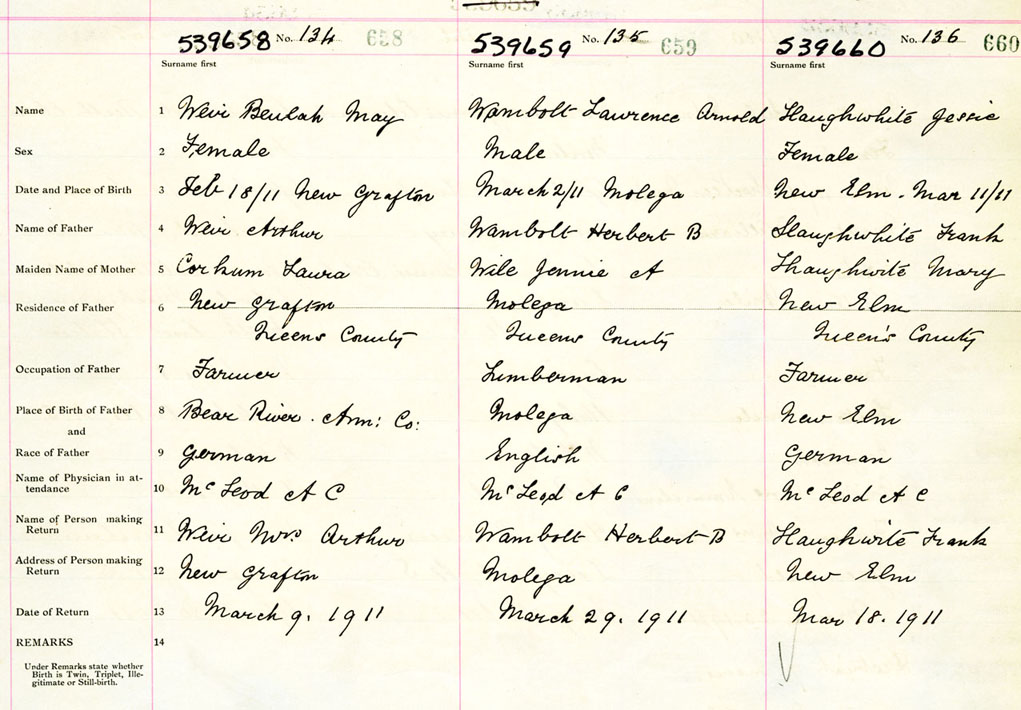 539658 No. 134 658 539659 No. 135 659 539660 No. 136 660
Surname first Surname first Surname first
Name 1 Weir Beulah May Wambolt Lawrence Arnold Slaughwhite Jessie
Sex 2 Female Male Female
Date and Place of Birth 3 Feb 18/11 New Grafton March 2/11 Molega New Elm. Mar 11/11
Name of Father 4 Weir Arthur Wambolt Herbert B Slaughwhite Frank
Maiden Name of Mother 5 Corkum Laura Wile Jennie A Slaughwite Mary
Residence of Father 6 New Grafton Molega New Elm
Queens County Queens County Queen's County
Occupation of Father 7 Farmer Lumberman Farmer
Place of Birth of Father 8 Bear River. Ann: Co: Molega New Elm
and
Race of Father 9 German English German
Name of Physician in at-
tendance 10 McLeod A C McLeod A C McLeod A C
Name of Person making
Return 11 Weir Mrs Arthur Wambolt Herbert B Slaughwite Frank
Address of Person making
Return 12 New Grafton Molega New Elm
Date of Return 13 March 9. 1911 March 29. 1911 Mar 18. 1911
REMARKS 14
Under Remarks state whether
Birth is Twin, Triplet, Ille-
gitimate or Still-birth.